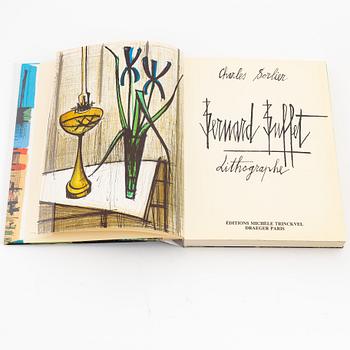 Charles Sorlier
Bernard Buffet
Lithographe
ÉDITIONS MICHÈLE TRINCKVEL
DRAEGER PARIS